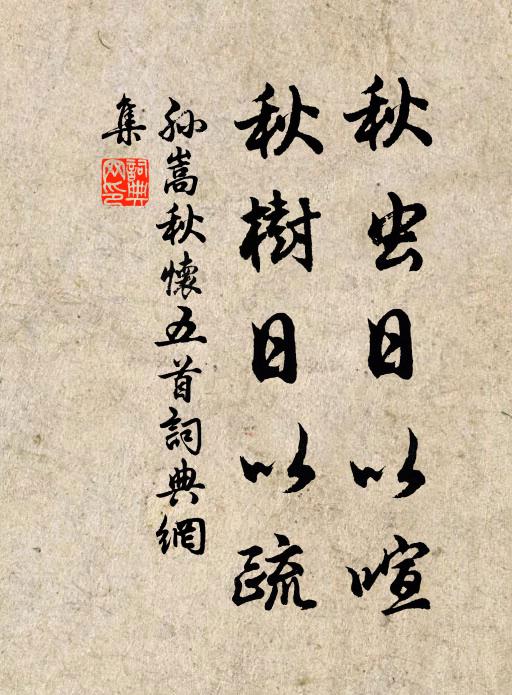 秋虫日以喧
秋樹日以疏
孙嵩秋懷五首詞典網
集
詞典
网印